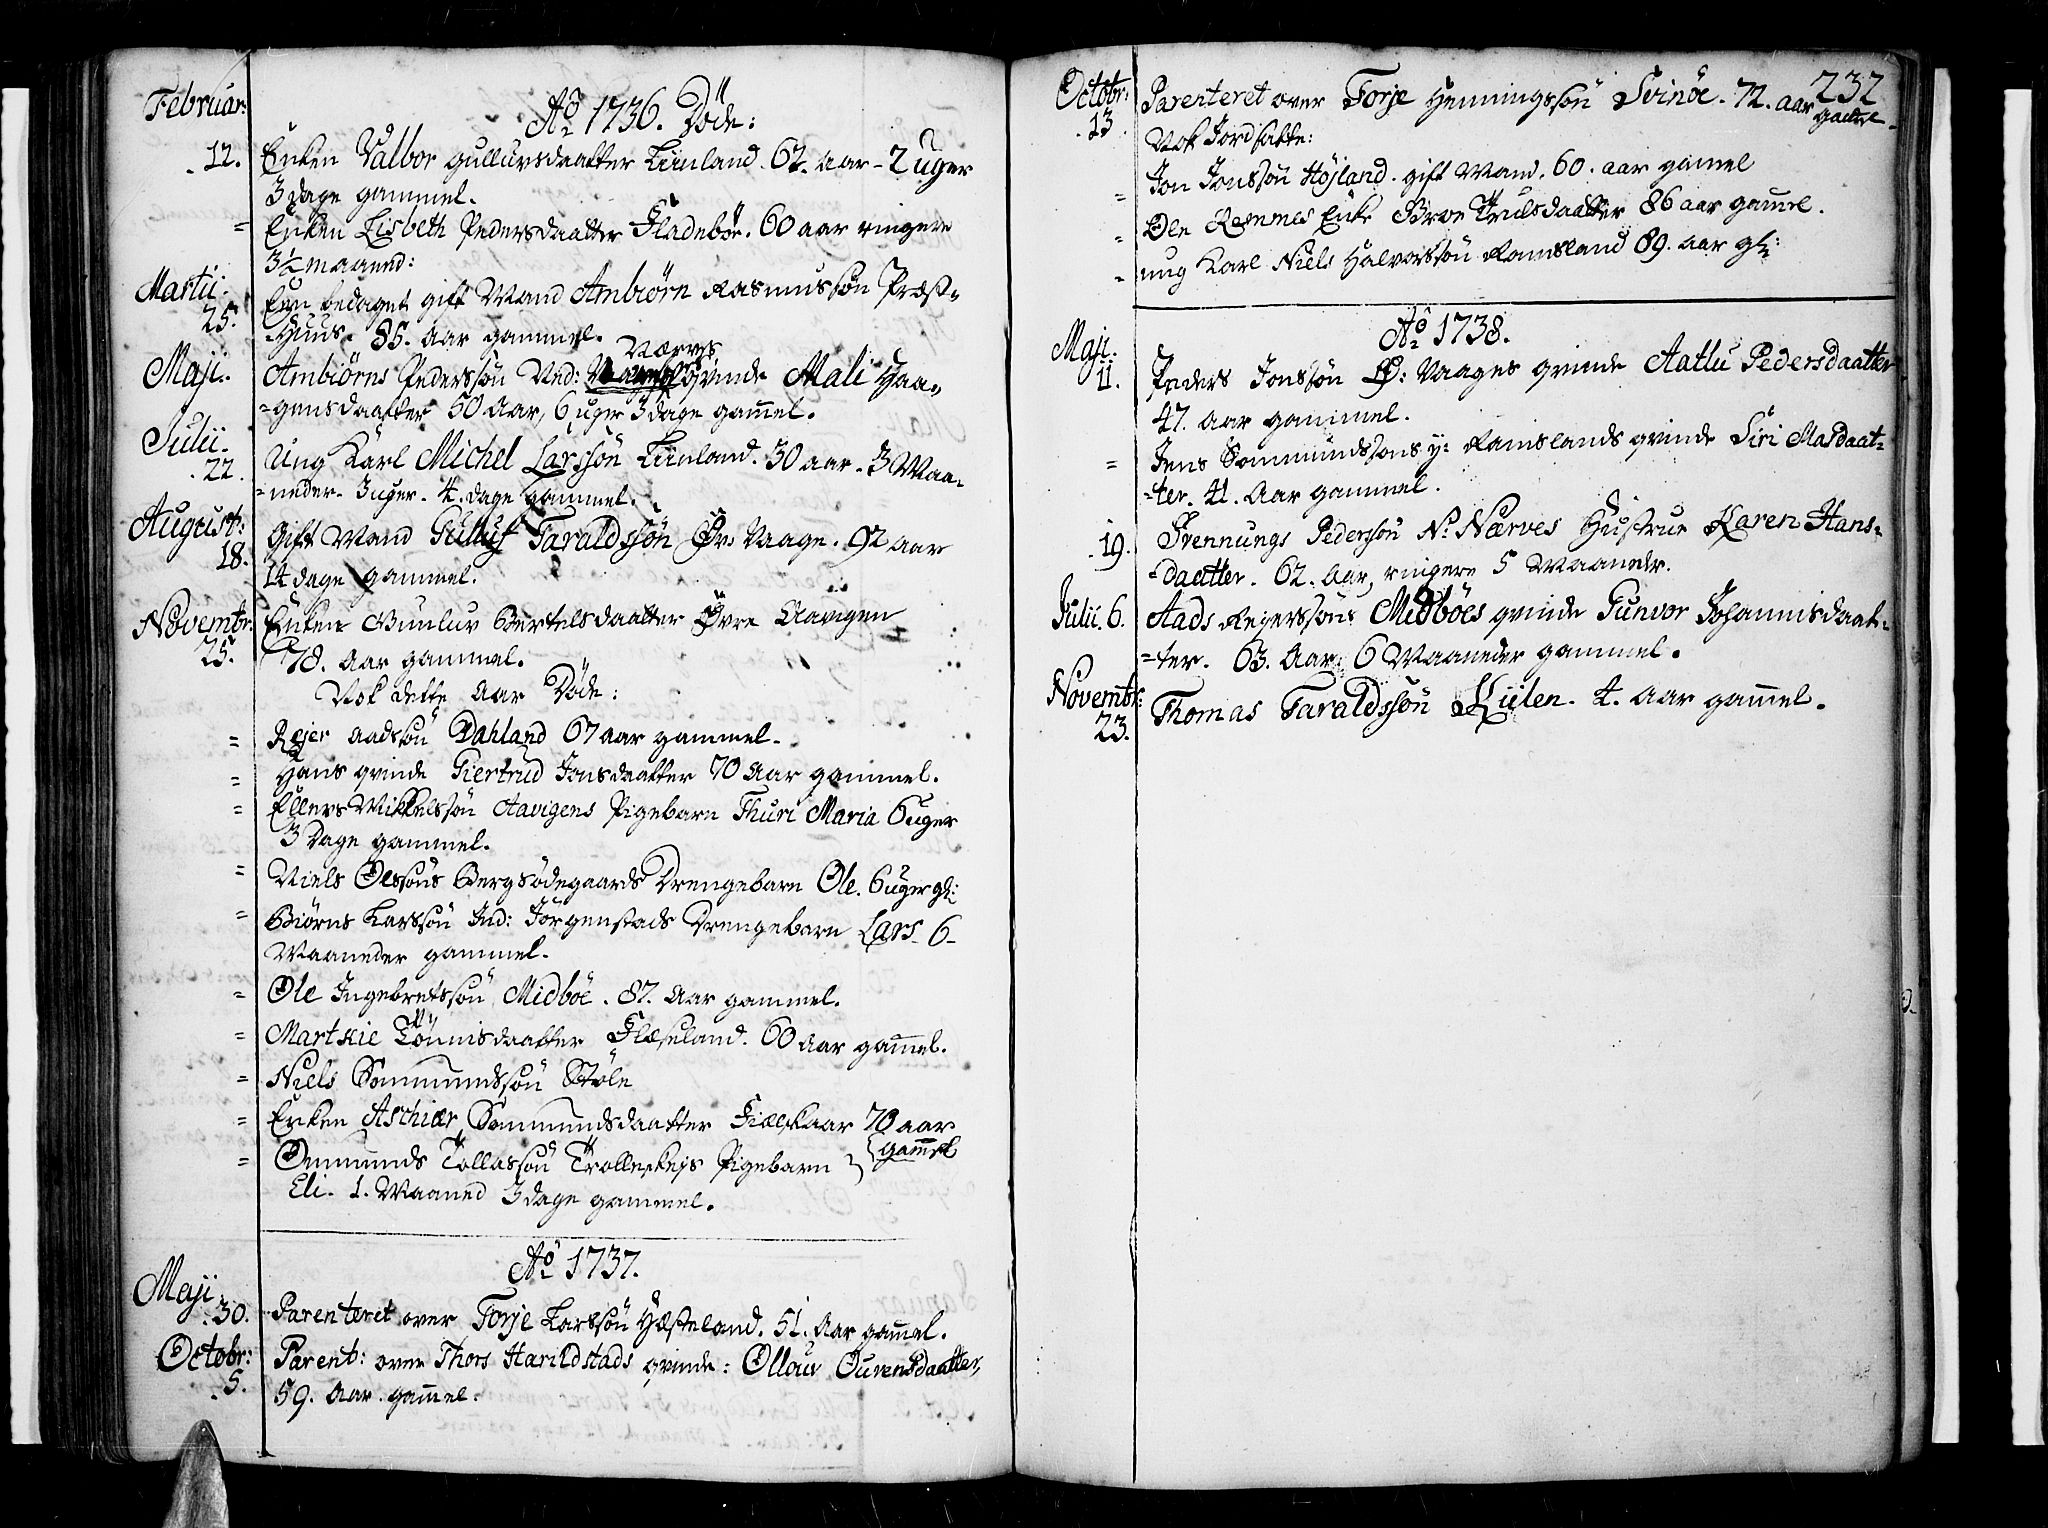 Februar:
Ao 1736. Döde:
12. Enken Valbor Gullursdaatter Liinland. 62. Aar - 2 uger
3 dage gammel.
= Enken Lisbeth Pedersdaatter Fladebör. 60 aar ringere
3½ maaned:
Martii. 25. Een bedaget gift Mand Ambiörn Rasmussön Præst=
Huus. 85. Aar gammel.
Nærves
Maji. Ambiörns Pederssön Ned: qvinde Mali Haa=
=gensdaatter 50 Aar, 6 uger 3 dage gamel.
Julii. 22. Ung Karl Michel Larssön Liinland. 30 aar. 3 Maa=
=neder. 3 uger. 4. dage gammel.
August: 18. Gift Mand Gulluf Taraldssön Ör: Vaage. 92 aar
14 dage gammel.
Novembr: 25. Enken Gunlur Bertelsdaatter Övre Aavigen
78. Aar gammel.
Nok dette Aar Döde:
= Rejer Aadssön Dahland 67 aar gammel.
= Hans qvinde Giertrud Jonsdaatter 70 Aar gammel.
= Ellers Mikkelssön Aavigens Pigebarn Thuri Maria 6 uger
3 Dage gammel.
= Niels Olssöns Bergsödegaards Drengebarn Ole. 6 uger gl:
= Biörns Larssön Ind: Jörgenstads Drengebarn Lars 6-
Maaneder gammel.
= Ole Ingebretssön Midböe. 87. Aar gammel.
= Martkie Tönnisdaatter Flæseland. 60 Aar gamel.
= Niels Sommundssön Stöle
= Enken Aschiær Sommundsdaatter Fiælskaar 70 aar
gamel
= Ommunds Tollassön Trolleskejs Pigebarn
Eli. 1. Maaned 3 dage gammel.
Ao 1737.
Maji. 30. Parenteret over Torje Larssön Hæsteland. 51. Aar gamel.
Octobr: 5. Parent: over Thors Harildstads qvinde: Ollour Ourensdaatter,
59. Aar gamel.
232
Octobr: 13. Parenteret over Torje Henningssön Svinöe. 72. aar gamel.
Nok Jordsatte:
= Jon Jonssön Höjland. gift Mand. 60. aar gamel
= Ole Remmes Enke Broe Trulsdaatter 86 aar gamel.
= ung Karl Niels Halvorssön Ramsland 89. aar gl:
Ao 1738.
Maji. 11. Peders Jonssön Vaages qvinde Aatlu Pedersdaatter
47. aar gammel.
= Jens Sommundssöns y: Ramslands qvinde Siri Masdaat=
=ter. 41. Aar gammel.
19. Svennungs Pederssön N: Nærves Hustrue Karen Hans=
=daatter. 62. Aar, ringere 5 Maaneder.
Julii. 6. Aads Rejerssöns Midböes qvinde Gunvor Johannisdaat=
=ter. 63. Aar. 6 Maaneder gammel.
Novembr: 23. Thomas Taraldssön Kiilen. 4. aar gamel.